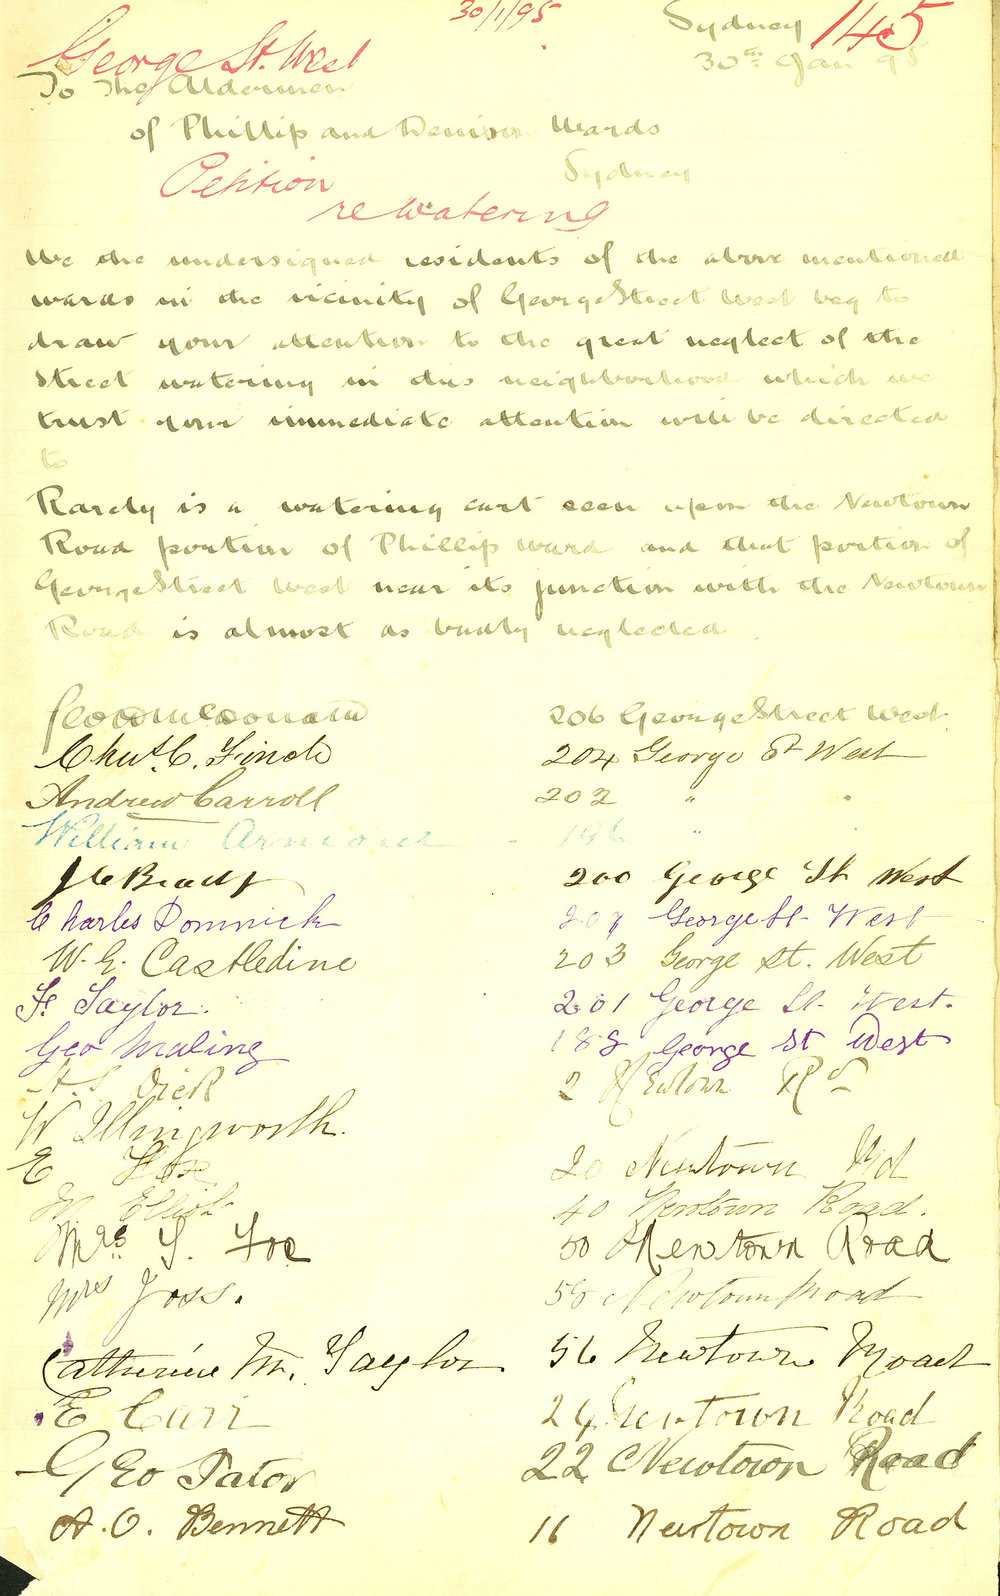 30/1/95
Sydney 145
George St. West
30th Jan 95
To The Aldermen
of Phillip and Denison Wards
Sydney
Petition
re Watering
We the undersigned residents of the above mentioned
wards in the vicinity of George Street West beg to
draw your attention to the great neglect of the
street watering in this neighborhood which we
trust your immediate attention will be directed
to
Rarely is a watering cart seen upon the Newtown
Road portion of Phillip ward and that portion of
George Street West near its junction with the Newtown
Road is almost as badly neglected
206 George Street West
Chas. C. Finch 204 George St West
Andrew Carroll 202 " "
William Armour 196 " "
Brady 200 George St West
Charles Domnick George St. West
W. G. Castledine 203 George st. West
F. Taylor. 201 George St. West.
Geo Maling 188 George St West
Dick 2 Newtown Rd
W Illingworth.
E Fox 20 Newtown Rd
M Elliot 40 Newtown Road.
Mrs S. Foe 50 Newtown Road
Mrs Joss. 58 Newtown Road
Catherine M. Taylor 56 Newtown Road
E Carr 24 Newtown Road
Geo Tator 22 Newtown Road
A. O. Bennett 16 Newtown Road